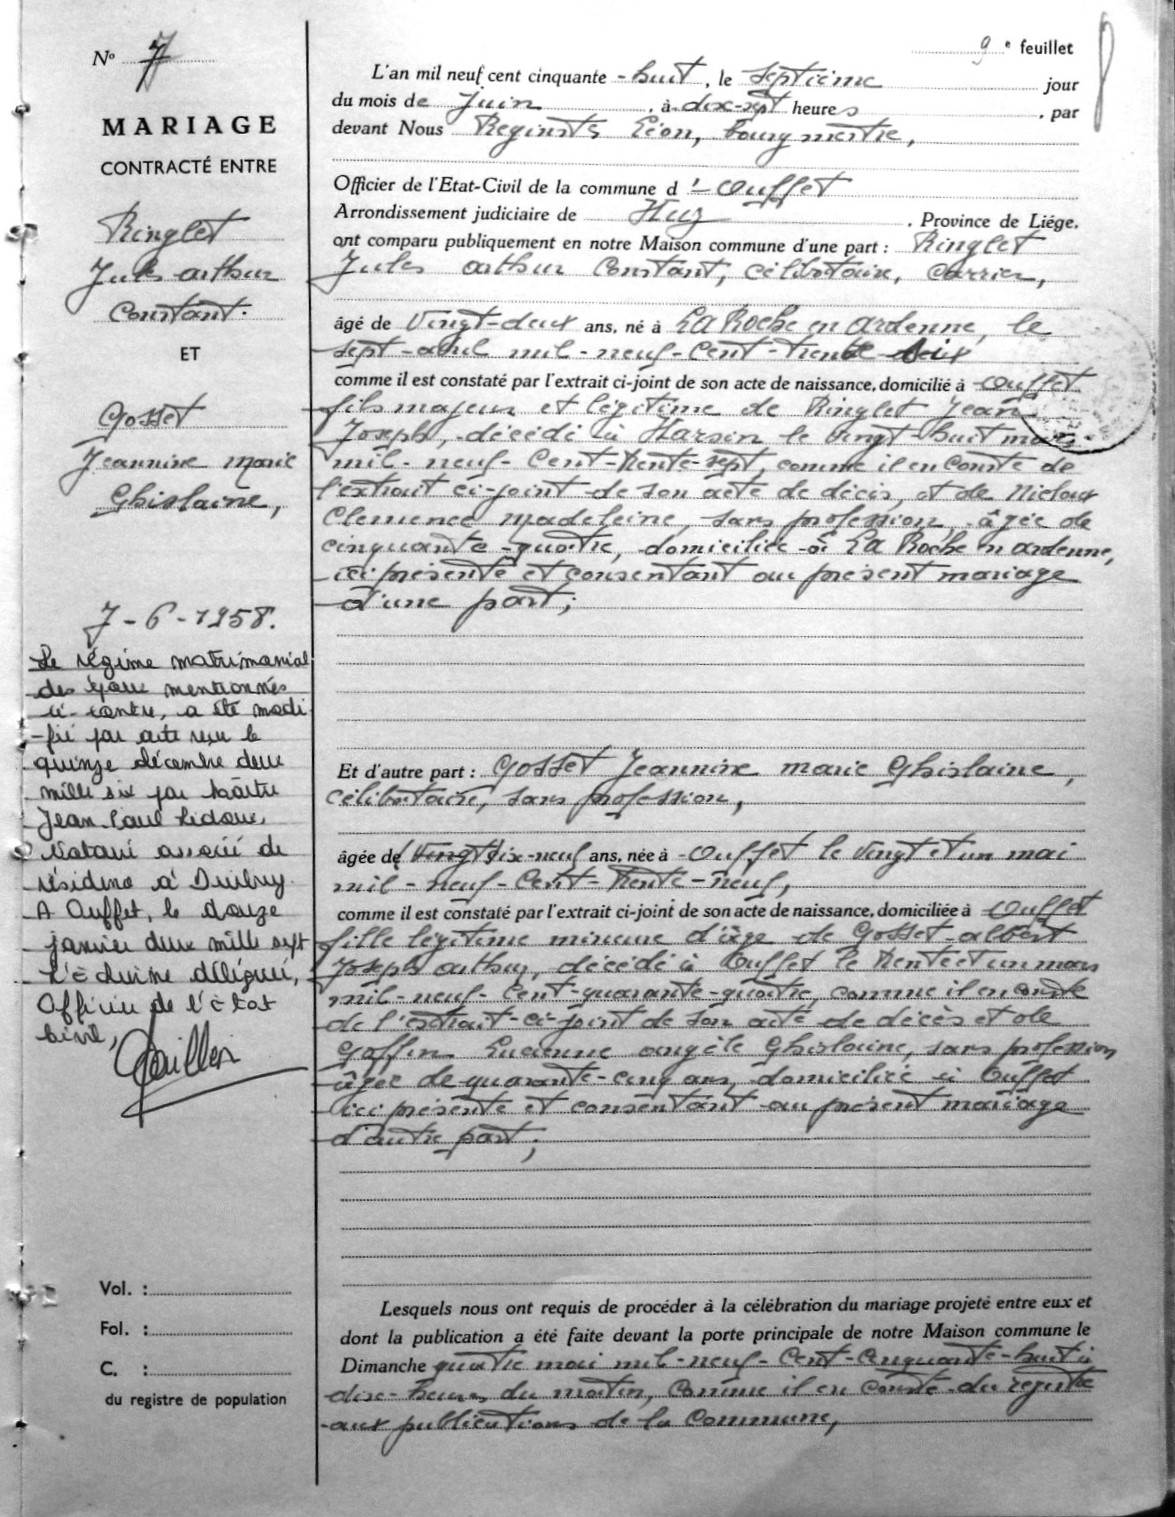 N° 7
9e feuillet
MARIAGE
CONTRACTÉ ENTRE
Ringlet
Jules arthur
Constant.
ET
Gosset
Jeannine marie
Ghislaine,
7-6-1958.
Le régime matrimonial
des époux mentionnés
ci-contre, a été modi
-fié par acte reçu le
quinze décembre deux
mille six par Maître
Jean-Paul Ledoux,
Notaire associé de
résidence à Durbuy.
A Ouffet, le douze
janvier deux mille sept
L'Echevine déléguée,
Officier de l'Etat
Civil,
Vol. :
Fol. :
C. :
du registre de population
L'an mil neuf cent cinquante -huit, le septième jour
du mois de Juin, à dix-sept heures, par
devant Nous Reginster Léon, bourgmestre,
Officier de l'Etat-Civil de la commune d'-Ouffet
Arrondissement judiciaire de Huy, Province de Liége.
ont comparu publiquement en notre Maison commune d'une part : Ringlet
Jules arthur Constant, célibataire, carrier,
âgé de vingt-deux ans, né à La Roche en ardenne, le
sept-avril mil-neuf-cent-trente-six
comme il est constaté par l'extrait ci-joint de son acte de naissance, domicilié à Ouffet
fils majeur et légitime de Ringlet Jean
Joseph, décédé à Harsin le vingt-huit mars
mil-neuf-cent-trente-sept, comme il en conste de
l'extrait ci-joint de son acte de décès, et de
Clemence Madeleine, sans profession, âgée de
cinquante-quatre, domiciliée à La Roche en ardenne,
ici présente et consentant au présent mariage
d'une part;
Et d'autre part : Gosset Jeannine marie Ghislaine,
célibataire, sans profession,
âgée de vingt dix-neuf ans, née à Ouffet le vingt et un mai
mil-neuf-cent-trente-neuf,
comme il est constaté par l'extrait ci-joint de son acte de naissance, domiciliée à Ouffet
fille légitime mineure d'âge de Gosset albert
Joseph arthur, décédé à Ouffet le trente et un mars
mil-neuf-cent-quarante-quatre, comme il en conste
de l'extrait-ci-joint de son acte de décès et de
Goffin Lucienne angèle Ghislaine, sans profession
âgée de quarante-cinq ans, domiciliée à Ouffet
ici présente et consentant au présent mariage
d'autre part;
Lesquels nous ont requis de procéder à la célébration du mariage projeté entre eux et
dont la publication a été faite devant la porte principale de notre Maison commune le
Dimanche quatre mai mil-neuf-cent-cinquante-huit à
dix-heures du matin, comme il en conste du registre
aux publications de la Commune,